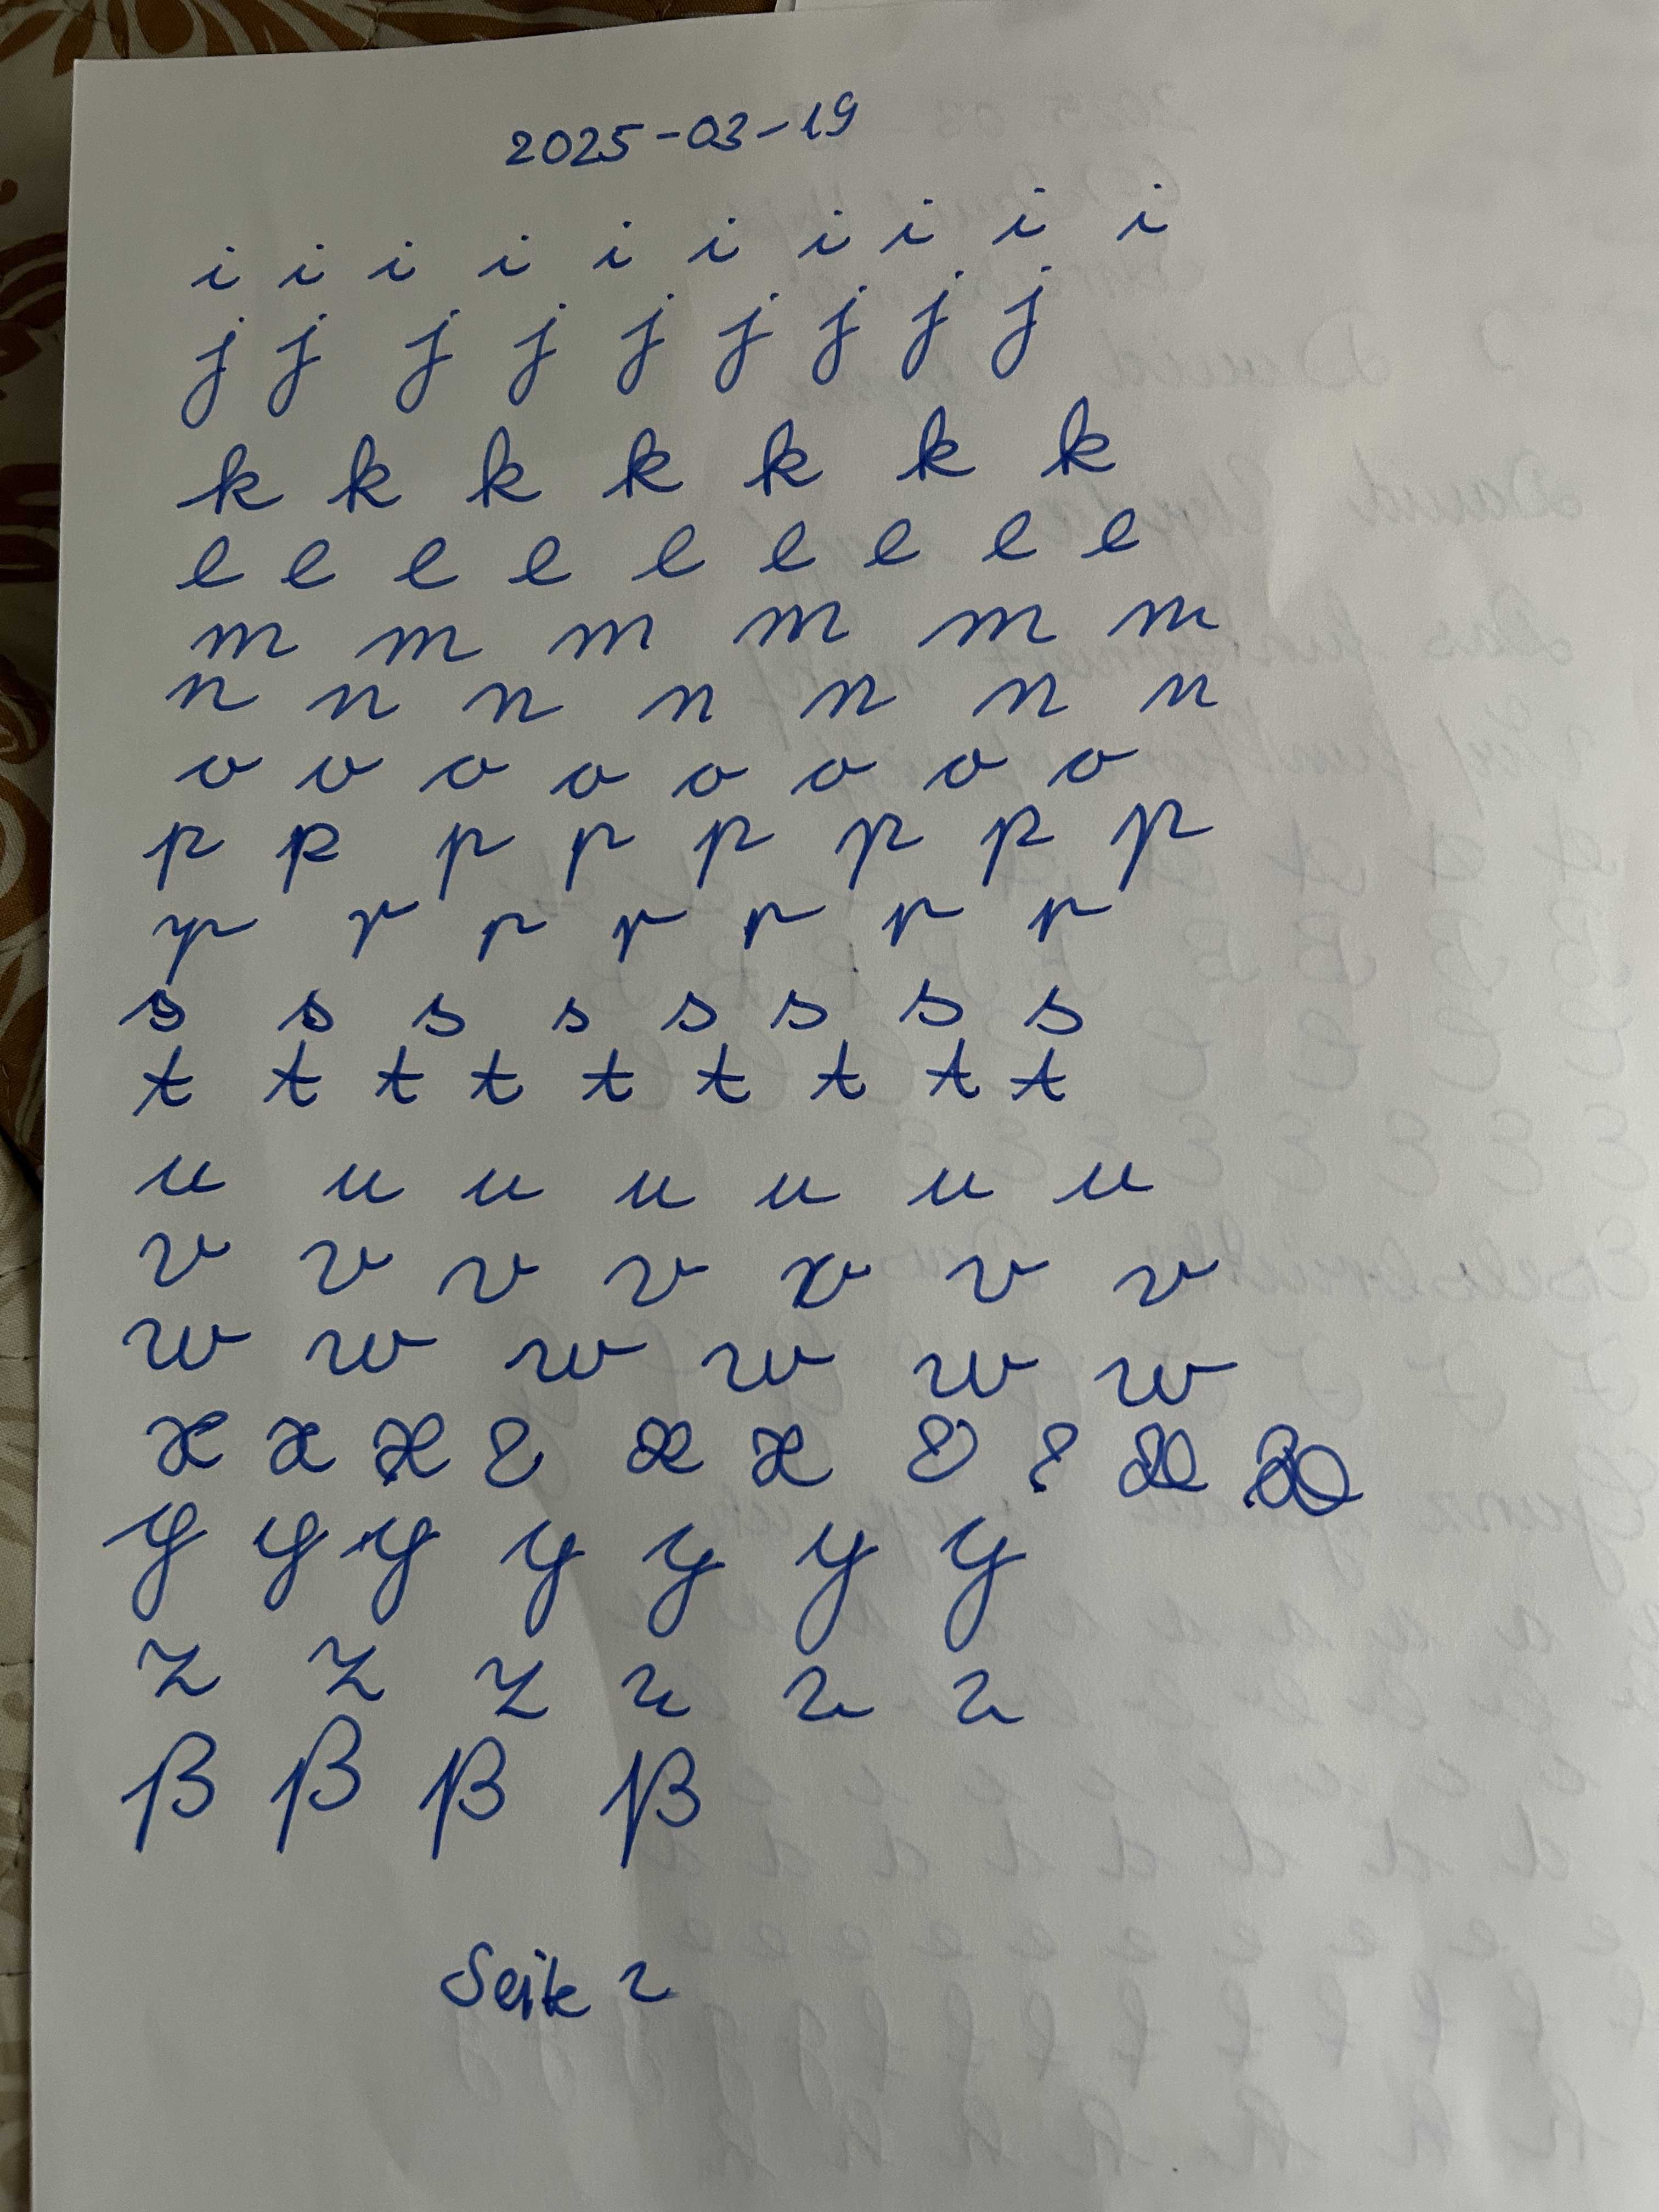 2025-03-19
i i i i i i i i i i
j j j j j j j j j
k k k k k k k
l l l l l l l l l
m m m m m m
n n n n n n n
o o o o o o o o
p p p p p p p p
r r r r r r r
s s s s s s s s
t t t t t t t t t
u u u u u u u
v v v v v v v
w w w w w w
x x x x x x
y y y y y y y
z z z z z z
ß ß ß ß
Seite 2